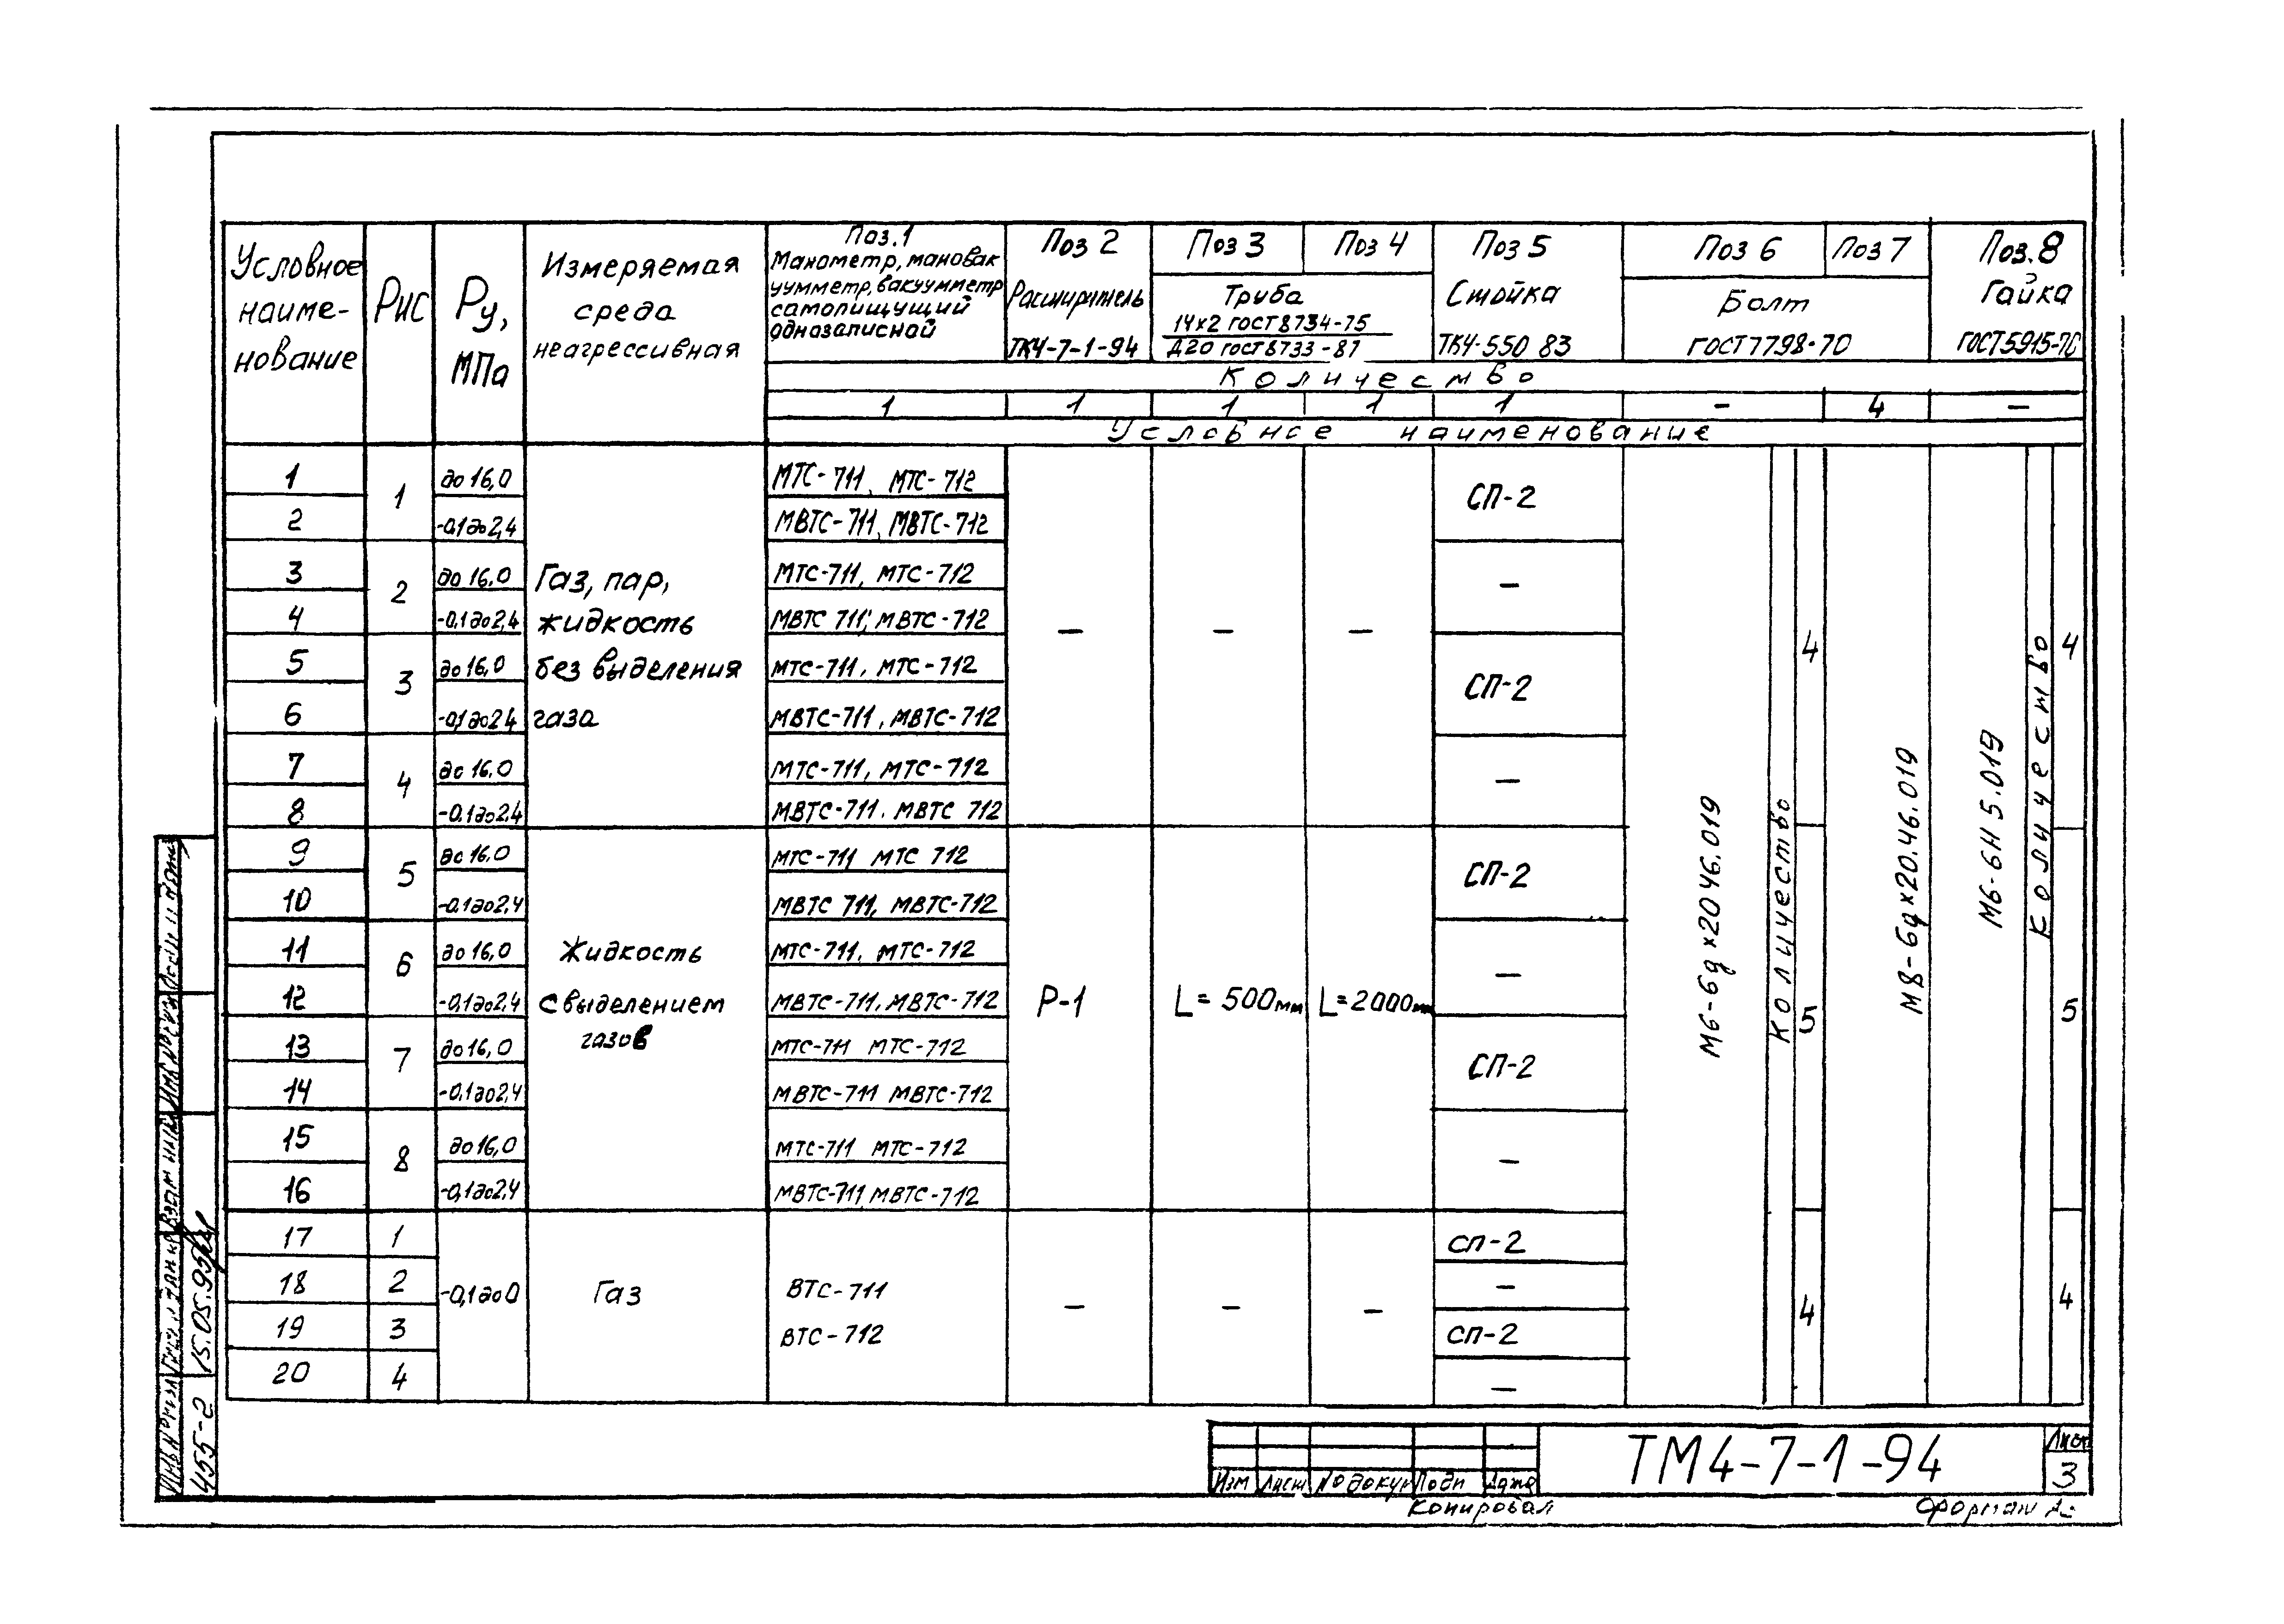 Условное наиме- нование
Рис
Ру, МПа
Измеряемая среда неагрессивная
Поз.1
Манометр, мановак
уумметр, вакуумметр
самопищущий
однозаписной
Поз 2
Расширитель
ТК4-7-1-94
Поз 3
Поз 4
Труба
14х2 ГОСТ 8734-75
Д20 ГОСТ 8733-87
Поз 5
Стойка
ТК4-550 83
Поз 6
Поз 7
Болт
ГОСТ 7798-70
Поз. 8
Гайка
ГОСТ 5915-70
Количество
1 1 1 1 1 – 4 –
Условное наименование
1 1 до 16,0 МТС-711, МТС-712 СП-2
2 -0,1 до 2,4 МВТС-711, МВТС-712
3 2 до 16,0 МТС-711, МТС-712 –
4 -0,1 до 2,4 МВТС 711, МВТС-712
5 3 до 16,0 МТС-711, МТС-712 СП-2
6 -0,1 до 2 4 МВТС-711, МВТС-712
7 4 до 16,0 МТС-711, МТС-712 –
8 -0,1 до 2,4 МВТС-711, МВТС 712
Газ, пар,
жидкость
без выделения
газа
– – –
9 5 до 16.0 МТС-711 МТС 712 СП-2
10 -0,1 до 2,4 МВТС 711, МВТС-712
11 6 до 16,0 МТС-711, МТС-712 –
12 -0,1 до 2,4 МВТС-711, МВТС-712
13 7 до 16,0 МТС-711 МТС-712 СП-2
14 -0,1 до 2,4 МВТС-711 МВТС-712
15 8 до 16,0 МТС-711 МТС-712 –
16 -0,1 до 2,4 МВТС-711, МВТС-712
Жидкость
с выделением
газов
Р-1
L= 500мм
L=2000м
17 1 СП-2
18 2 –
19 3 СП-2
20 4 –
-0,1 до 0
Газ
ВТС-711
ВТС-712
– – –
М6-6gх20 46.019
Количество
4
5
4
М8-6gх20.46.019
М6-6Н 5.019
Количество
4
5
4
15.05.95
455-2
Изм Лист № докум Подп Дата
ТМ4-7-1-94
Лист
3
Копировал
Формат